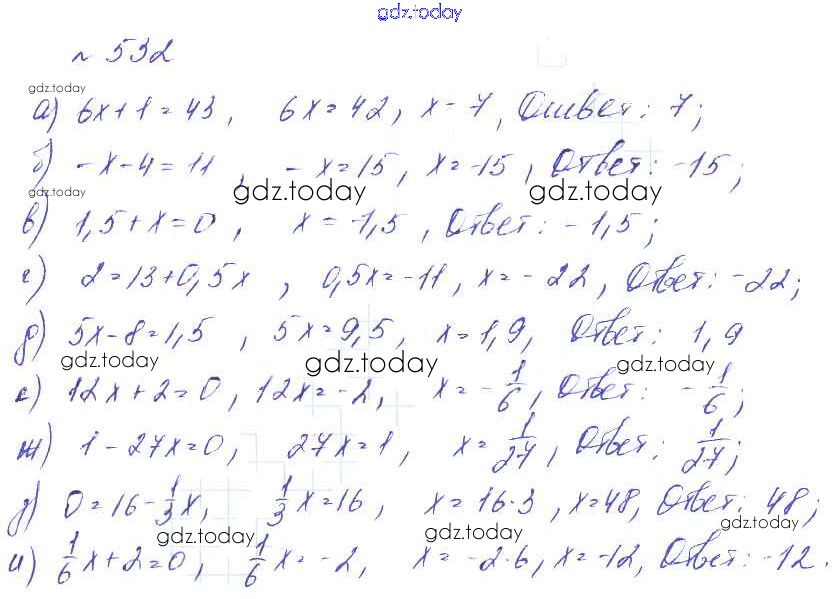 gdz.today
№ 532
gdz.today
а) 6x+1=43, 6x=42, x=7, Ответ: 7;
б) -x-4=11, -x=15, x=-15, Ответ: -15;
gdz.today gdz.today gdz.today
в) 1,5+x=0, x=-1,5, Ответ: -1,5;
г) 2=13+0,5x, 0,5x=-11, x=-22, Ответ: -22;
д) 5x-8=1,5, 5x=9,5, x=1,9, Ответ: 1,9
gdz.today gdz.today gdz.today
е) 12x+2=0, 12x=-2, x=-1/6, Ответ: -1/6;
ж) 1-27x=0, 27x=1, x=1/27, Ответ: 1/27;
з) 0=16-1/3x, 1/3x=16, x=16·3, x=48, Ответ: 48;
gdz.today gdz.today gdz.today
и) 1/6x+2=0, 1/6x=-2, x=-2·6, x=-12, Ответ: -12.